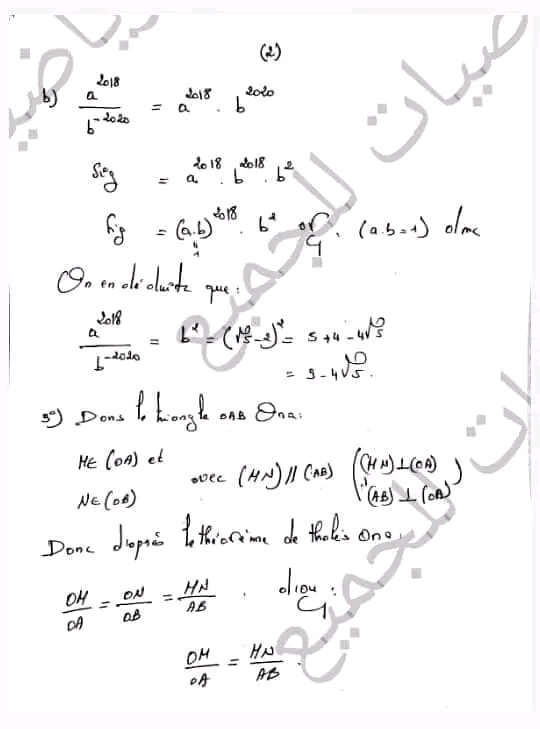 (2)
b) a^2018 / b^-2020 = a^2018 . b^2020
= a^2018 . b^2018 . b^2
= (a.b)^2018 . b^2 or (a.b=1) donc
On en déduite que:
a^2018 / b^-2020 = b^2 = (√5-2)^2 = 5+4-4√5
= 9-4√5.
3°) Dans le triangle OAB Ona:
M∈(OA) et
N∈(OB) avec (MN)//(AB) ((MN)⊥(OA)
(AB)⊥(OA))
Donc d'après le théorème de thales Ona:
OM/OA = ON/OB = MN/AB . d'où:
OM/OA = MN/AB .
رياضيات للجميع